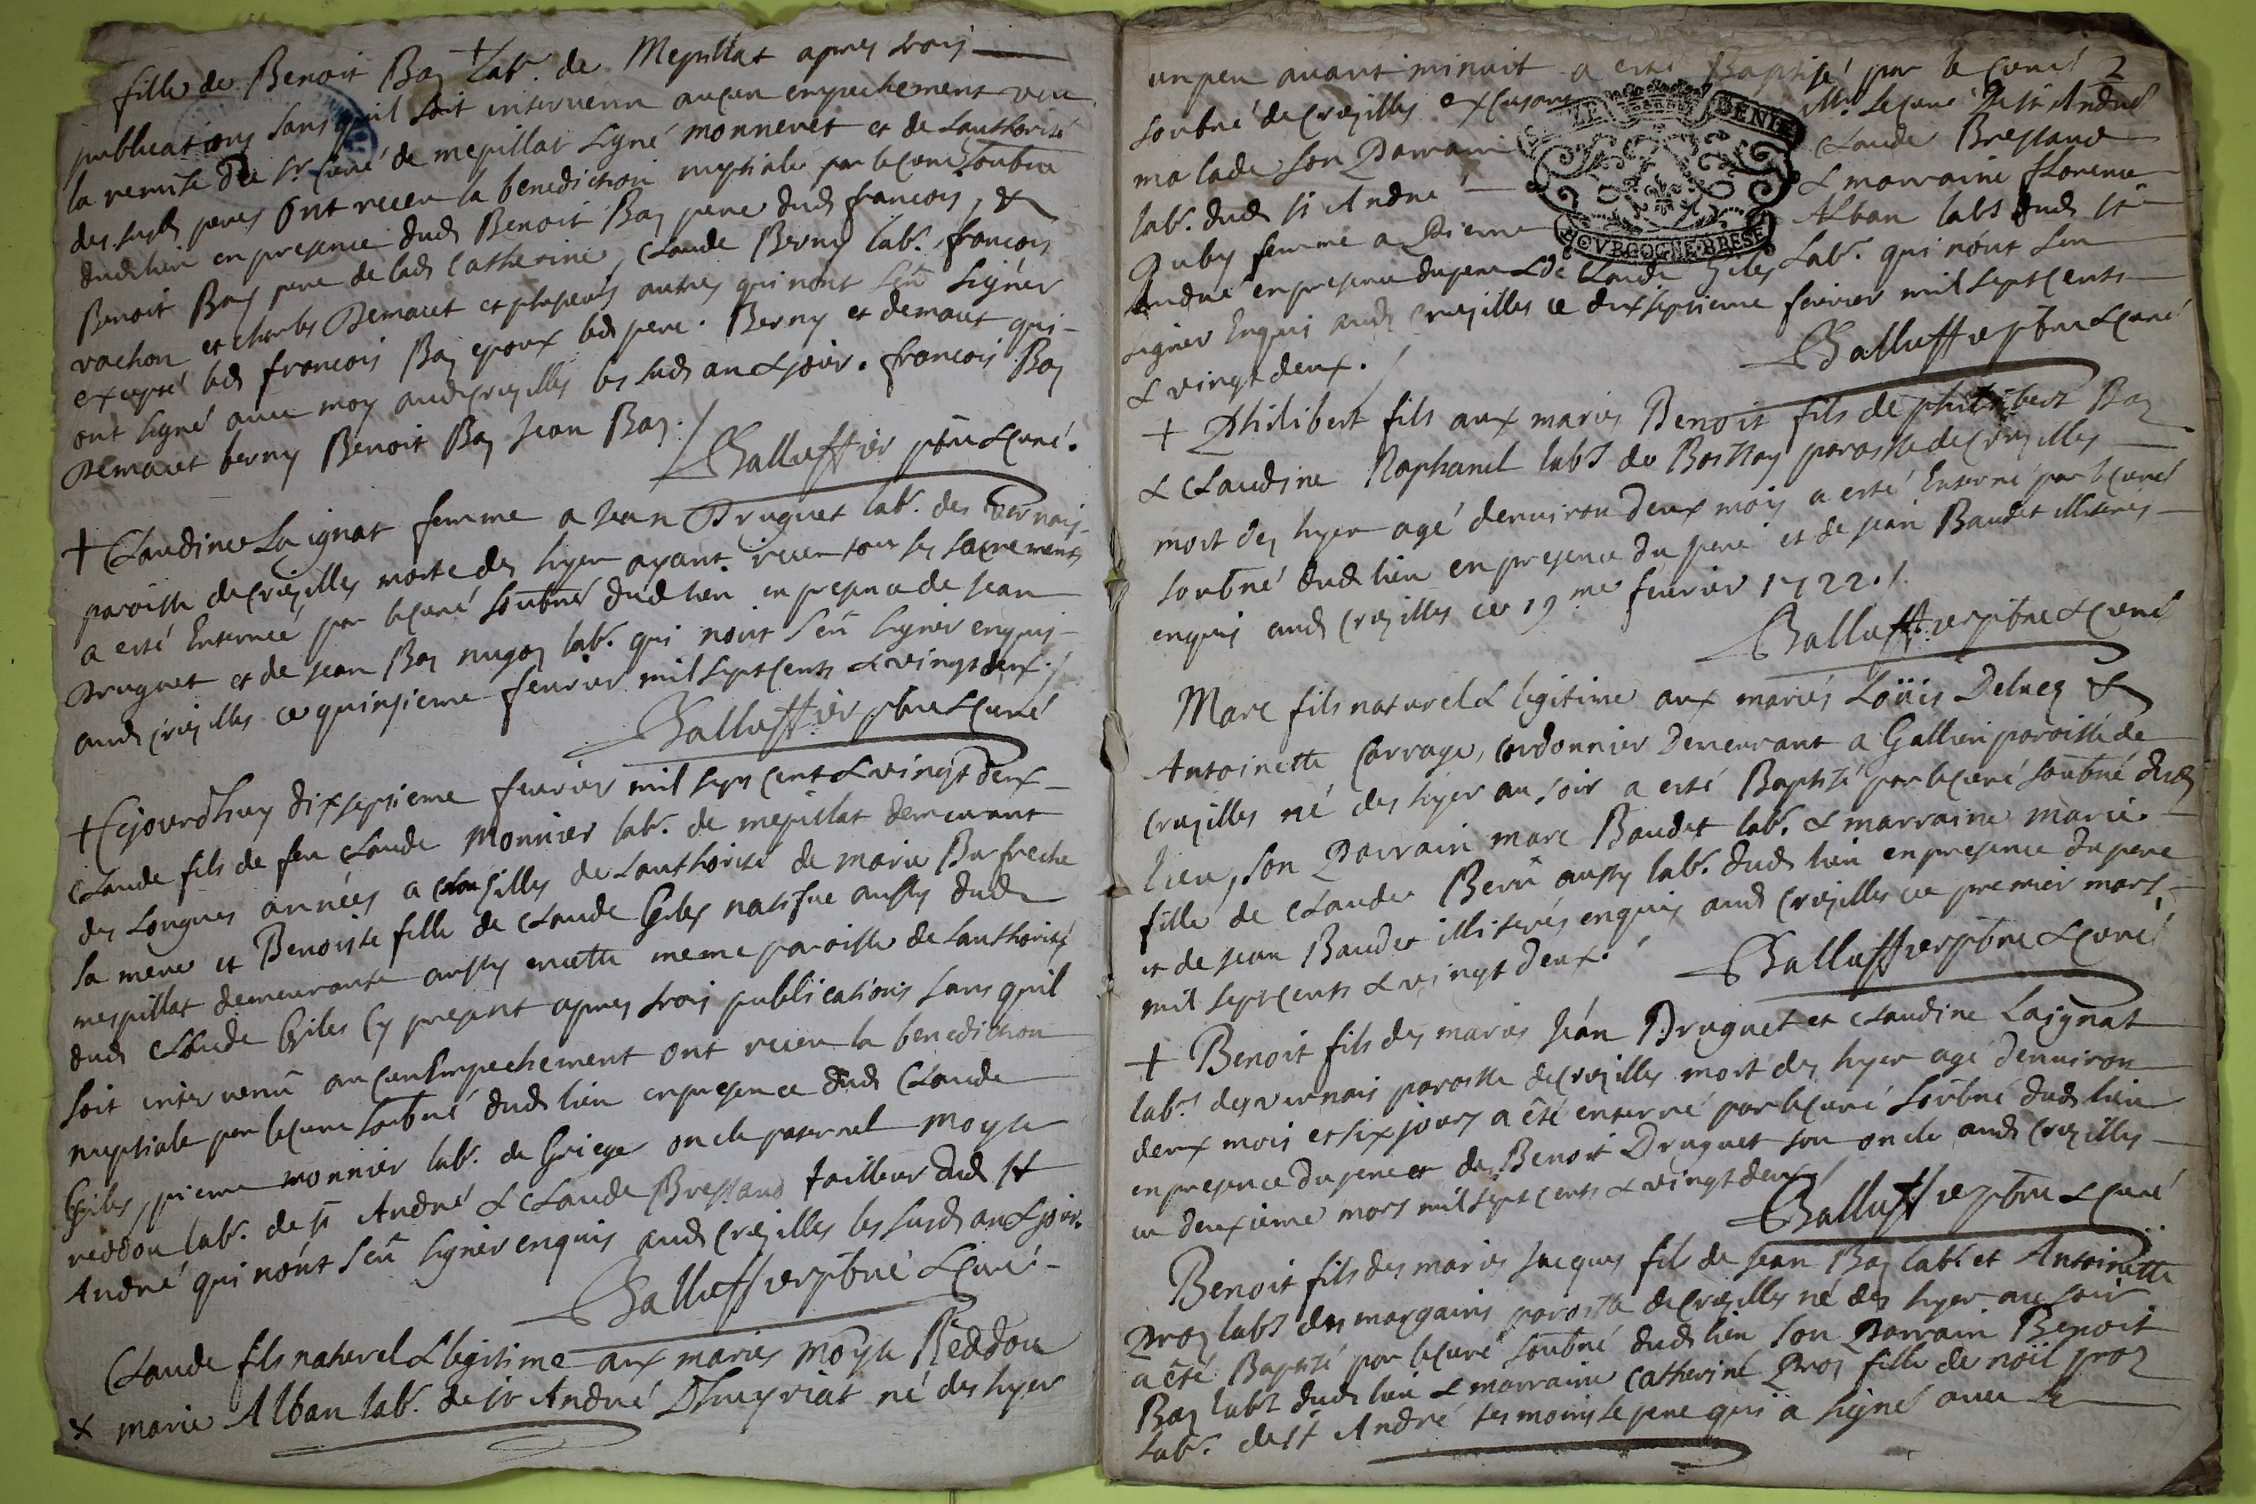 fille de Benoit Bay Lab.r de Mepillat apres trois
publications sans quil soit intervenu aucun empechement veu
la remise du Sr Curé de mepillat signé monneret et de lauthorité
des susds peres Ont receu la benediction nuptiale par le Curé soubné
dudit lieu en presence dud Benoit Bay pere dud francois, &
Benoit Bay pere de lad Catherine, Claude Berny lab.r francois
vachon et charles Demauct et plusieurs autres qui nont sceu signer
excepté led francois Bay epoux led pere. Berny et demauct qui
ont signé avec moy aud Crusilles les susd an & jour. francois Bay
Demauct berny Benoit Bay Jean Bay./
Balluffier pbre & Curé.
+ Claudine Laignat femme a Jean Druguet lab.r des Vernais
paroisse de Crusilles morte des hyer ayant receu tous les sacrements
a esté Enterreé par le Curé soubné dud lieu en presence de Jean
Druguet et de Jean Bay nugoy lab.r qui nont sceu signer enquis
aud Crusilles ce quinsieme fevrier mil sept Cents & vingt deux./
Balluffier pbre & Curé
+ Cejourdhuy dixseptieme fevrier mil sept cent & vingt deux
Claude fils de feu Claude Monnier lab.r de mepillat demeurant
des longues années a Crusilles de lauthorité de marie Burfreche
sa mere et Benoiste fille de Claude Giles natifue aussy dud
mespillat demeurante aussy en cette meme paroisse de lauthorité
dud Claude Giles Cy present apres trois publications sans quil
soit intervenu aucun Empechement ont receu la benediction
nuptiale par le Curé soubné dud lieu en presence dud Claude
Giles, pierre monnier lab.r de Griege oncle paternel moyse
reddou lab.r de st André & Claude Bressand tailleur dud st
André qui nont sceu signer enquis aud Crusilles les susd an & jour.
Balluffier pbre & Curé
Claude fils naturel & legitime aux mariés moyse Reddou
& marie Alban lab.r de st André Dhuyriat né des hyer
un peu avant minuit a esté Baptisé par le Curé 2
soubné de Crusilles excusant Mr. le Curé de st André
malade son Parrain Claude Bressand
lab.r dud st André & marraine florence
Puby femme a Pierre Alban labs dud st
André en presence du pere & de Claude Giles Lab.r qui nont sceu
signer Enquis aud Crusilles ce dixseptieme fevrier mil sept Cents
& vingt deux./
Balluffier pbre & Curé
GENE
BOVRGOGNE·BRESSE
+ Philibert fils aux mariés Benoit fils de philibert Bay
& Claudine Raphanel labs de Bosnay paroisse de Crusilles
mort des hyer agé denviron deux mois a esté Enterré par le Curé
soubné dud lieu en presence du pere et de Jean Baudet illiterés
enquis aud Crusilles ce 19me fevrier 1722./
Balluffier pbre & Curé
Marc fils naturel & legitime aux mariés Loüis Delucq &
Antoinette Carrage, Cordonnier demeurant a Gallien paroisse de
Crusilles né des hyer au soir a esté Baptisé par le Curé soubné dud
lieu, son Parrain marc Baudet lab.r & marraine marie
fille de Claude Berü aussy lab.r dud lieu en presence du pere
et de Jean Baudet illiterés enquis aud Crusilles ce premier mars
mil sept Cents & vingt deux.
Balluffier pbre & Curé
+ Benoit fils des mariés Jean Druguet et Claudine Laignat
lab.r des vernais paroisse de Crusilles mort des hyer agé denviron
deux mois et six jours a été enterré par le Curé soubné dud lieu
en presence du pere et de Benoit Druguet son oncle aud Crusilles
ce deuxieme mars mil sept Cents & vingt deux /
Balluffier pbre & Curé
Benoit fils des mariés Jacques fils de Jean Bay labr et Antoinette
Proz labs des margains paroisse de Crusilles né des hyer au soir
a été Baptisé par le Curé soubné dud lieu son Parrain Benoit
Bay labs dud lieu & marraine Catherine Proz fille de noïl proz
lab.r de st André tesmoins le pere qui a signé avec le